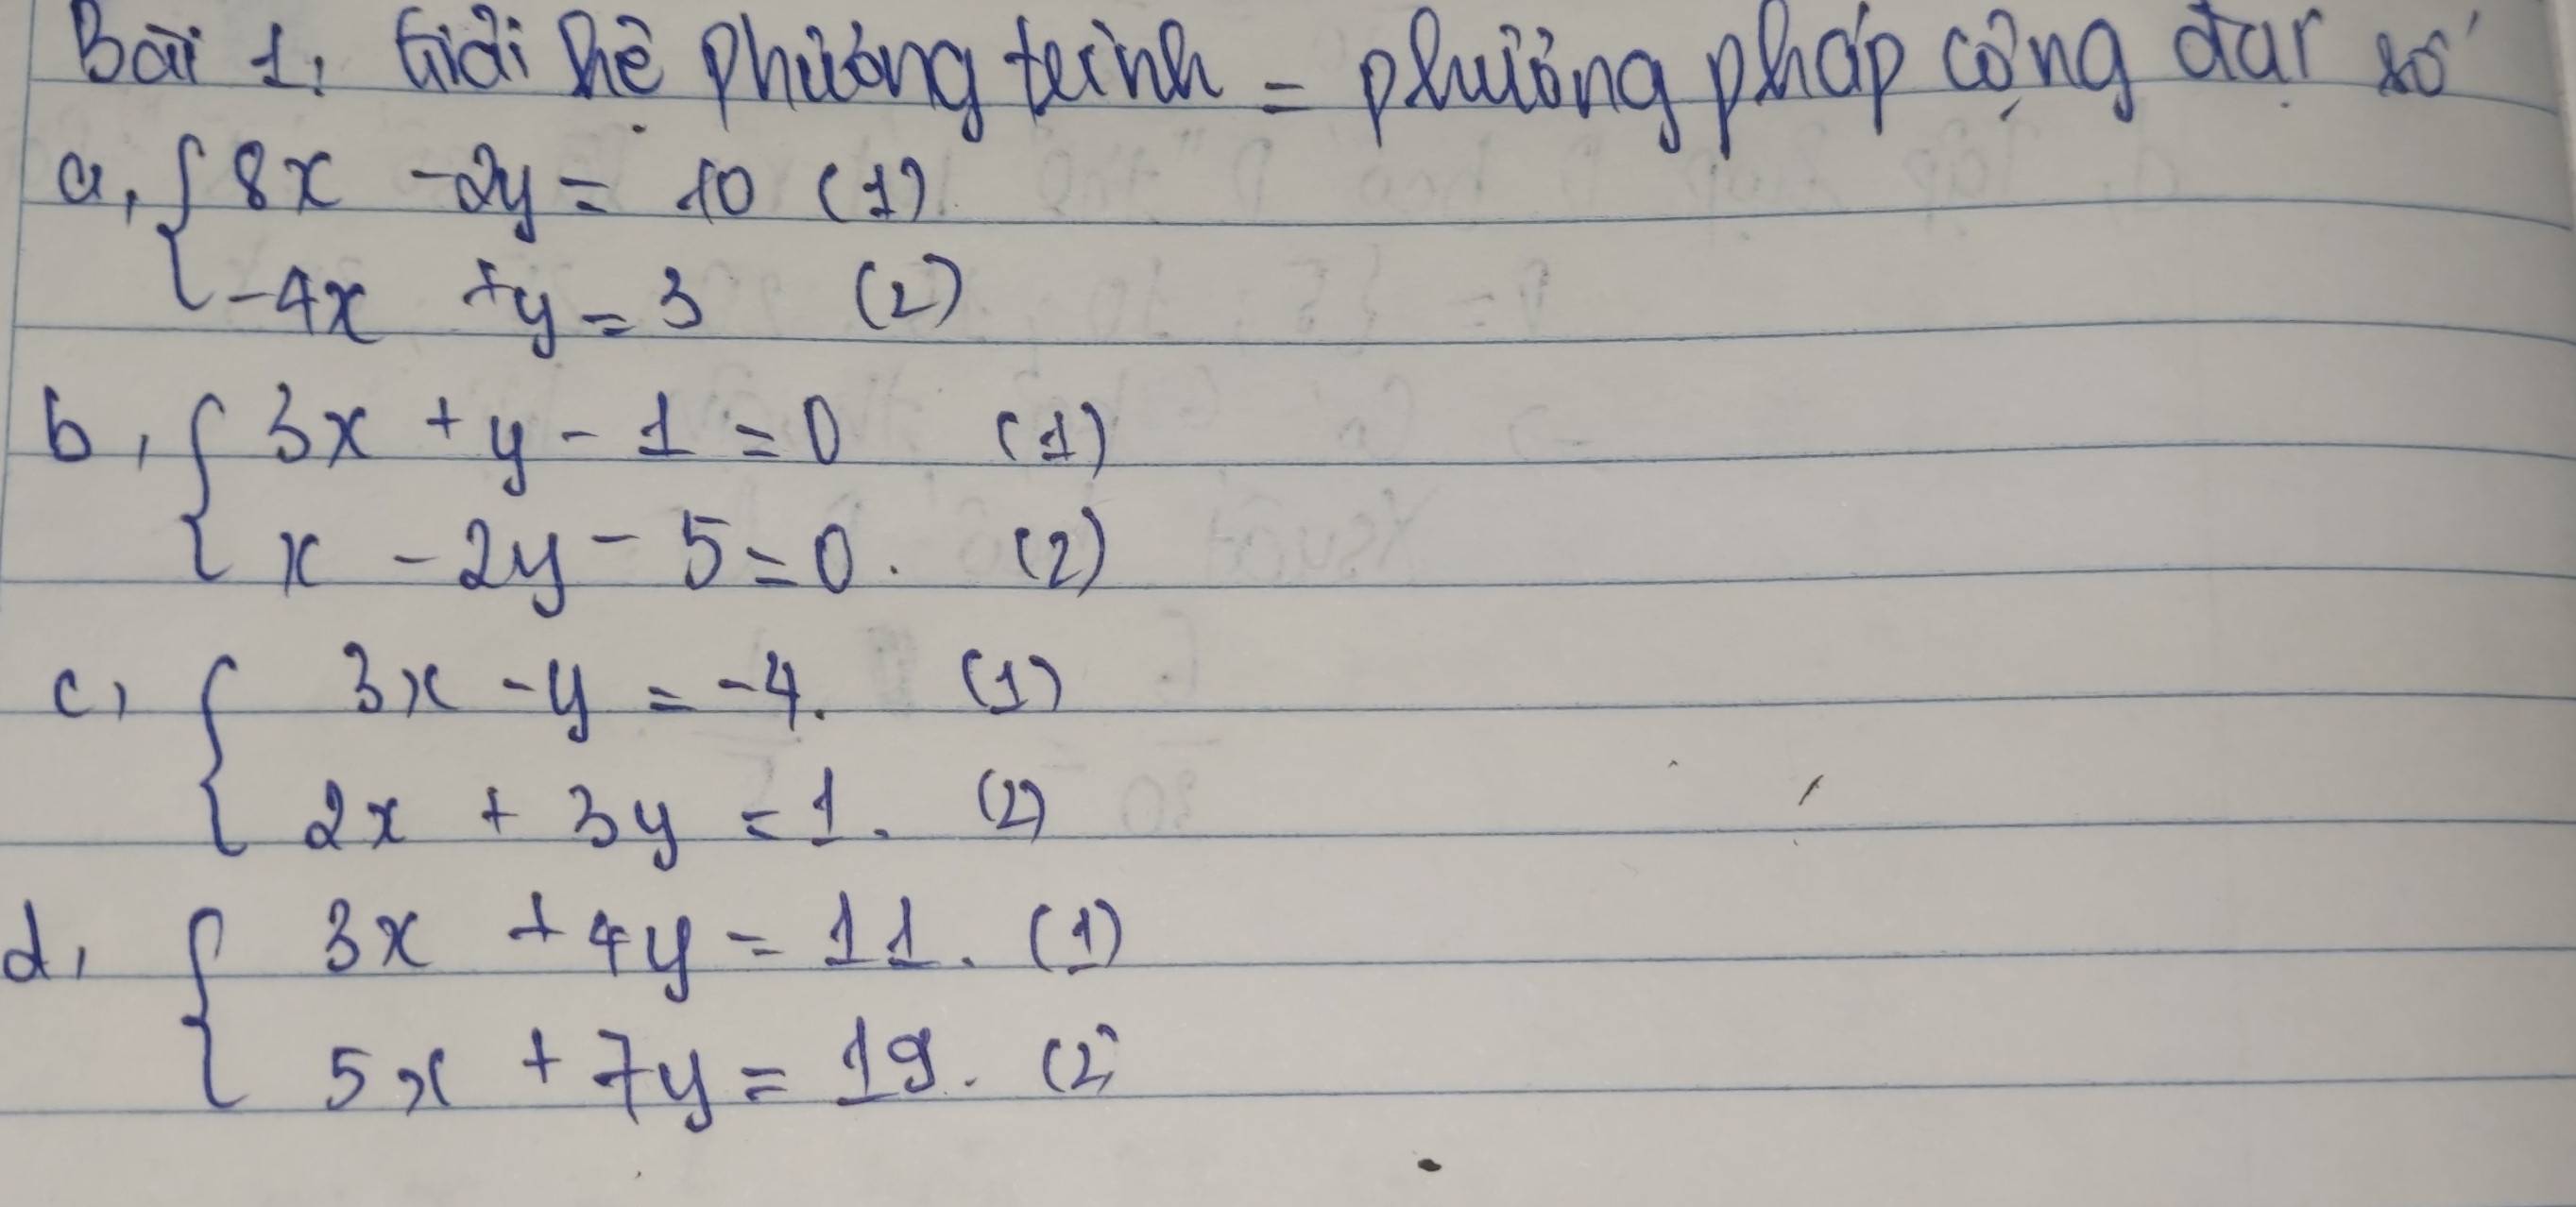 Bài 1, Giải hệ phương trình = phương pháp cộng đại số
a, { 8x - 2y = 10 (1)
-4x + y = 3 (2)
b, { 3x + y - 1 = 0 (1)
x - 2y - 5 = 0. (2)
c, { 3x - y = -4. (1)
2x + 3y = 1. (2)
d, { 3x + 4y = 11. (1)
5x + 7y = 19. (2)